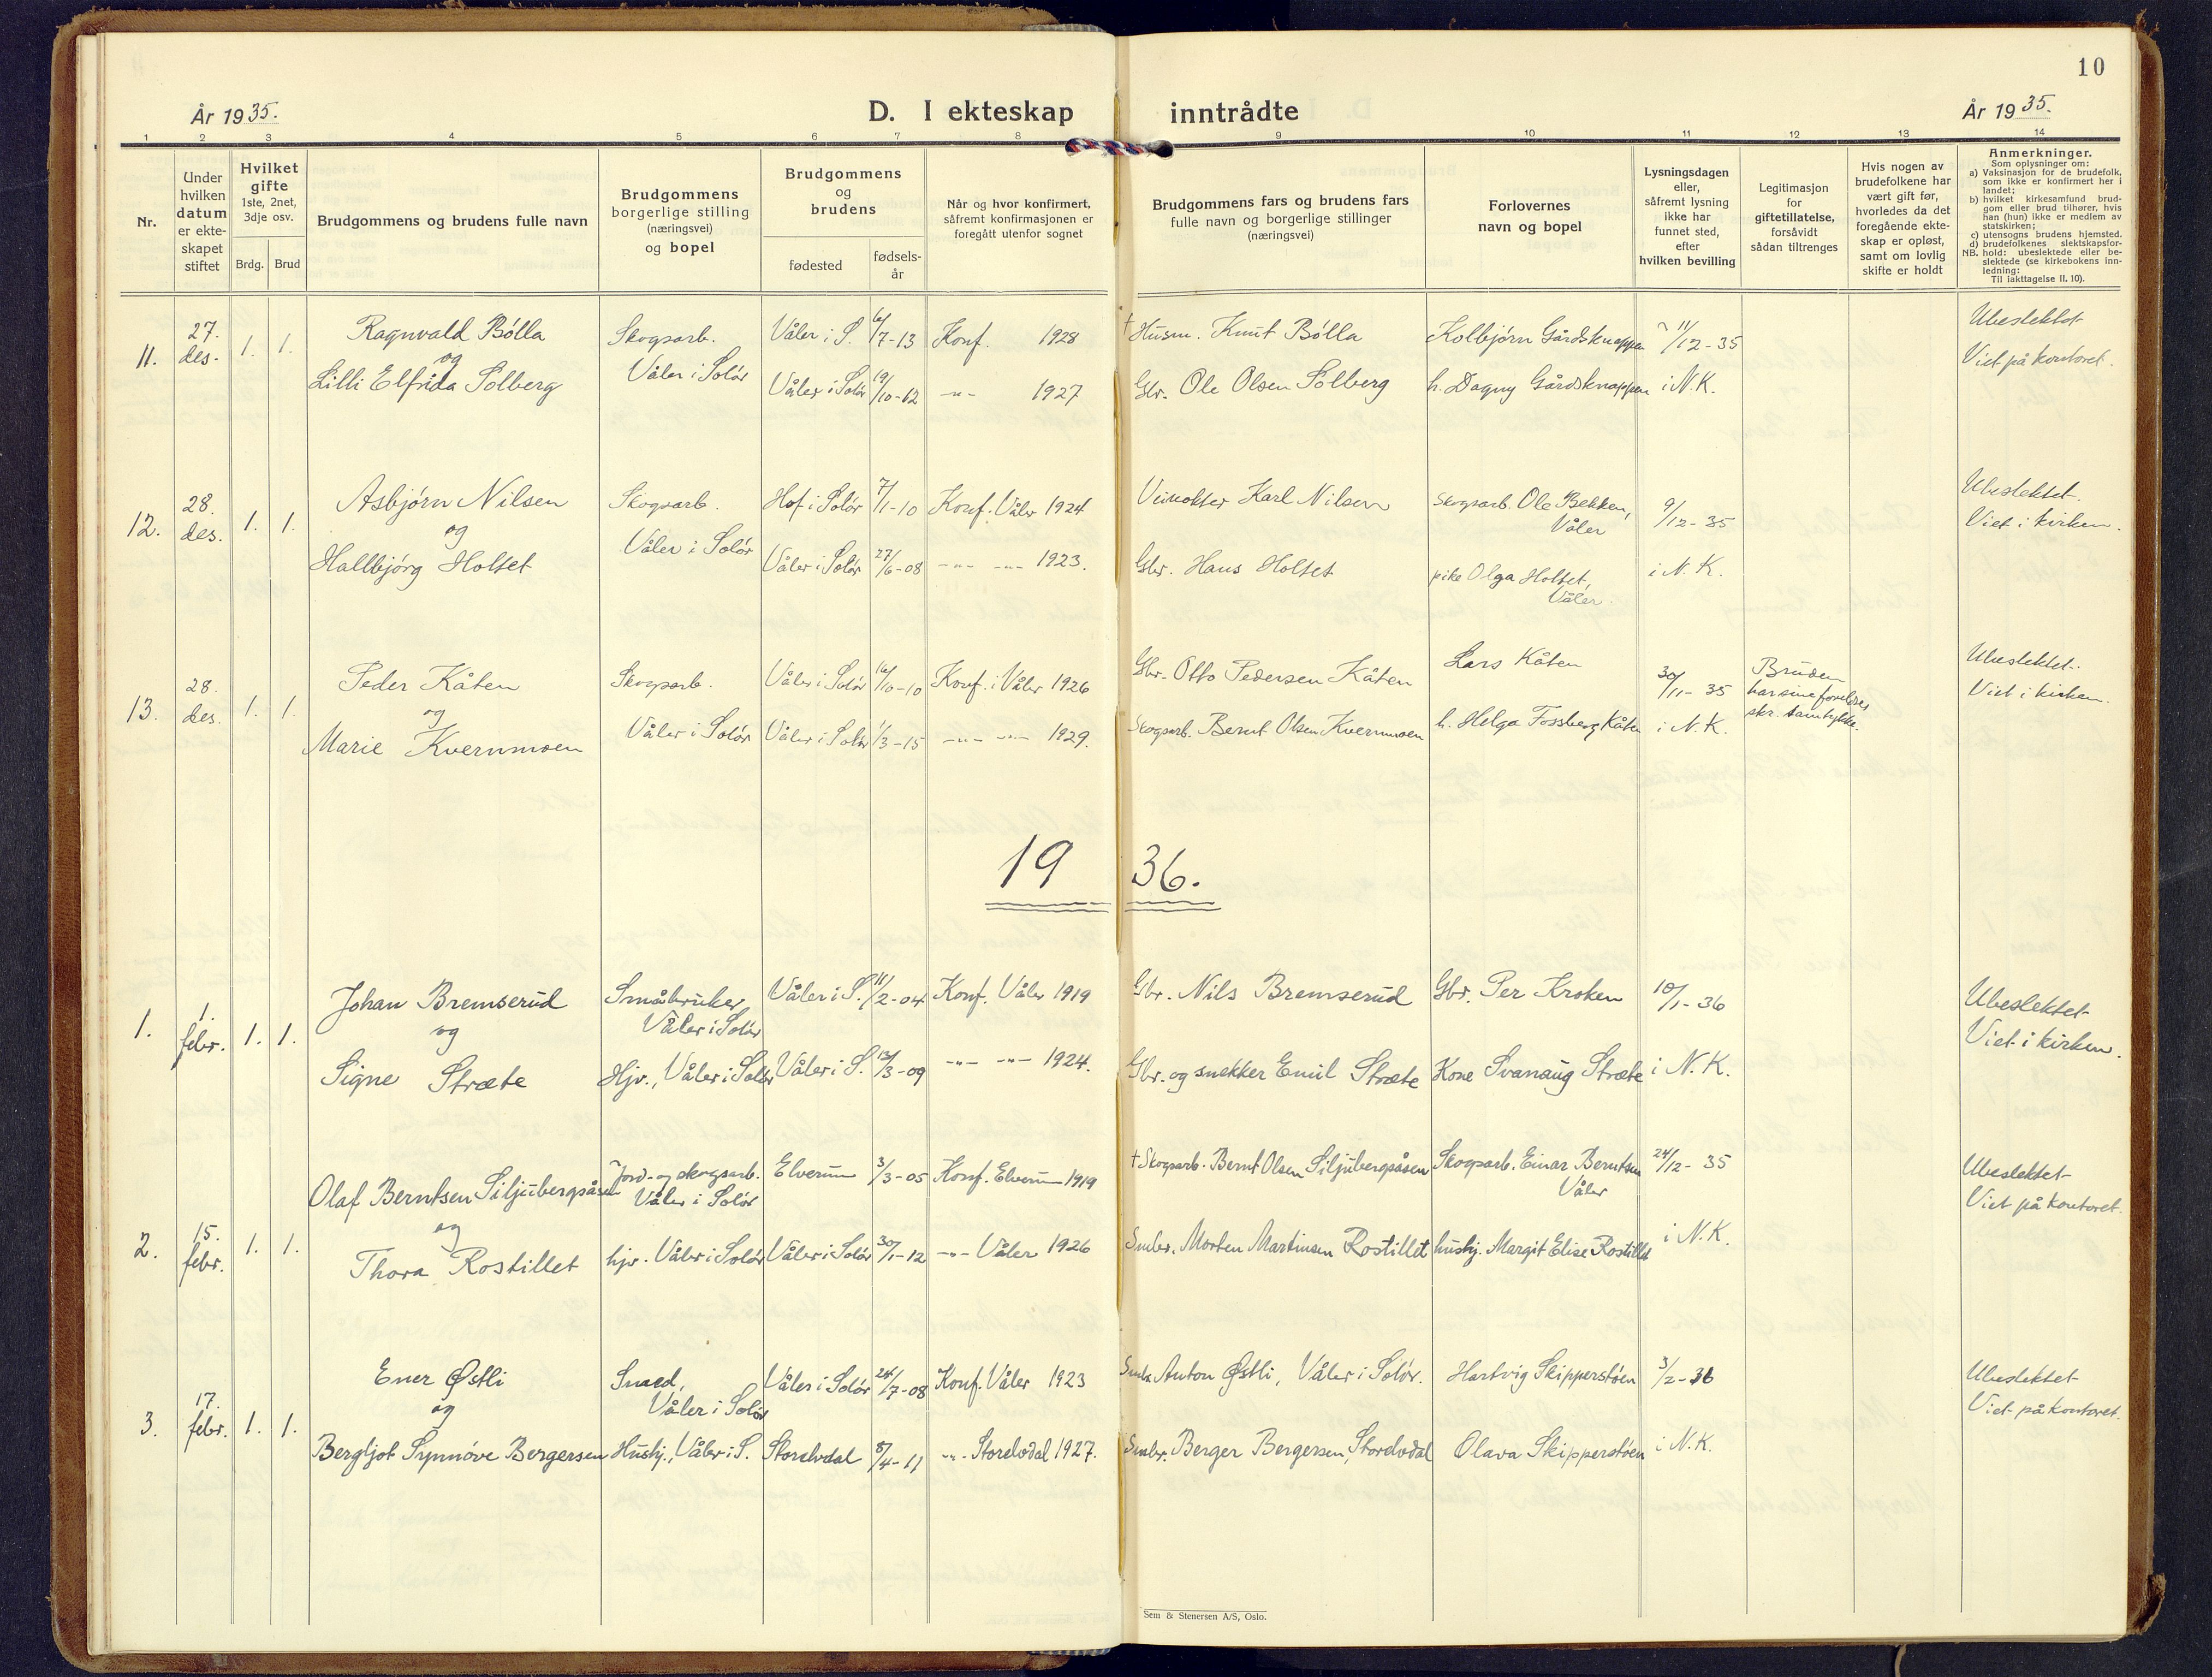 10
År 1935.
D. I ekteskap inntrådte
År 1935.
1 2 3 4 5 6 7 8 9 10 11 12 13 14
Nr.
Under hvilken datum er ekteskapet stiftet
Hvilket gifte 1ste, 2net, 3dje osv.
Brdg. Brud
Brudgommens og brudens fulle navn
Brudgommens borgerlige stilling (næringsvei) og bopel
Brudgommens og brudens
fødested
fødsels-år
Når og hvor konfirmert, såfremt konfirmasjonen er foregått utenfor sognet
Brudgommens fars og brudens fars fulle navn og borgerlige stillinger (næringsvei)
Forlovernes navn og bopel
Lysningsdagen eller, såfremt lysning ikke har funnet sted, efter hvilken bevilling
Legitimasjon for giftetillatelse, forsåvidt sådan tiltrenges
Hvis nogen av brudefolkene har vært gift før, hvorledes da det foregående ekteskap er opløst, samt om lovlig skifte er holdt
Anmerkninger.
Som oplysninger om:
a) Vaksinasjon for de brudefolk, som ikke er konfirmert her i landet;
b) hvilket kirkesamfund brudgom eller brud tilhører, hvis han (hun) ikke er medlem av statskirken;
c) utensogns brudens hjemsted.
d) brudefolkenes slektskapsforhold: ubeslektede eller beslektede (se kirkebokens innledning:
NB.
Til iakttagelse II. 10).
11. 27. des. 1. 1.
Ragnvald Bólla Skogsarb. Våler i S. 6/7-13 Konf. 1928 † Husm. Knut Bólla Kolbjørn Gårdsknappen 11/12-35 Ubeslektet
og Våler i Solór Viet på kontoret.
Lilli Elfrida Solberg Våler i Solór 19/10-12 -"- 1927 Gbr. Ole Olsen Solberg h. Dagny Gårdsknappen i N.K.
12. 28. des. 1. 1.
Asbjørn Nilsen Skogsarb. Hof i Solór 7/1-10 Konf. Våler 1924 Karl Nilsen Skogsarb. Ole Bekken, Våler 9/12-35 Ubeslektet.
og Våler i Solór Viet i kirken.
Hallbjörg Holtet Våler i Solór 27/6-08 -"- -"- 1923. Gbr. Hans Holtet pike Olga Holtet, Våler. i N.K.
13. 28. des. 1. 1.
Peder Kåten Skogsarb. Våler i Solór 16/10-10 Konf. i Våler 1926 Gbr. Otto Pedersen Kåten Lars Kåten 30/11-35 Bruden har sine foreldres skr. samtykke. Ubeslektet.
og Våler i Solór Viet i kirken.
Marie Kvernmoen Våler i Solór 1/3-15 -"- -"- 1929. Skogsarb. Bernt Olsen Kvernmoen h. Helga Fossberg Kåten i N.K.
1936.
1. 1. febr. 1. 1.
Johan Bremserud Småbruker, Våler i Solór Våler i S. 11/2-04 Konf. Våler 1919 Gbr. Nils Bremserud Gbr. Per Kroken 10/1-36 Ubeslektet
og Viet i kirken.
Signe Stræte Hjv., Våler i Solór Våler i S. 13/3-09 -"- -"- 1924. Gbr. og snekker Emil Stræte Kone Svanaug Stræte i N.K.
2. 15. febr. 1. 1.
Olaf Berntsen Siljubergsåsen Jord- og skogsarb. Våler i Solór Elverum 3/3-05 Konf. Elverum 1919 † Skogsarb. Bernt Olsen Siljubergsåsen Skogsarb. Einar Berntsen Våler 24/12-35 Ubeslektet
og Viet på kontoret.
Thora Rostillet hjv. Våler i Solór Våler i Solór 30/1-12 -"- Våler 1926 Smbr. Morten Martinsen Rostillet hushj. Margit Elise Rostillet i N.K.
3. 17. febr. 1. 1.
Ener Østli Smed, Våler i Solór Våler i Solór 24/7-08 Konf. Våler 1923 Smbr. Anton Østli, Våler i Solór. Hartvig Skipperstøen 3/2-36 Ubeslektet
og Viet på kontoret.
Bergljot Synnöve Bergersen Hushj., Våler i S. Storelvdal 8/4-11 -"- Storelvdal 1927. Smbr. Berger Bergersen, Storelvdal Olava Skipperstøen i N.K.
Sem & Stenersen A/S, Oslo.